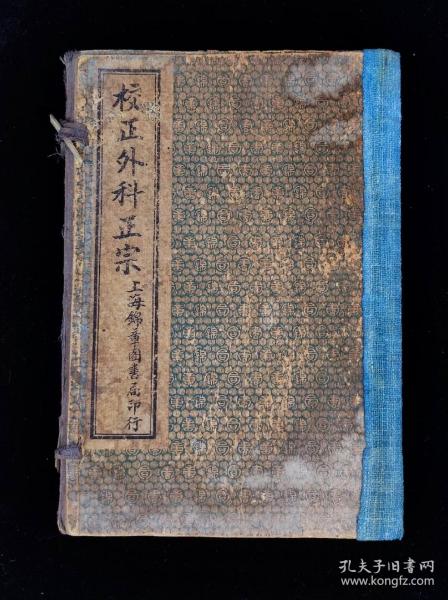 校正外科正宗
上海錦章圖書局印行
孔夫子旧书网
www.kongfz.com